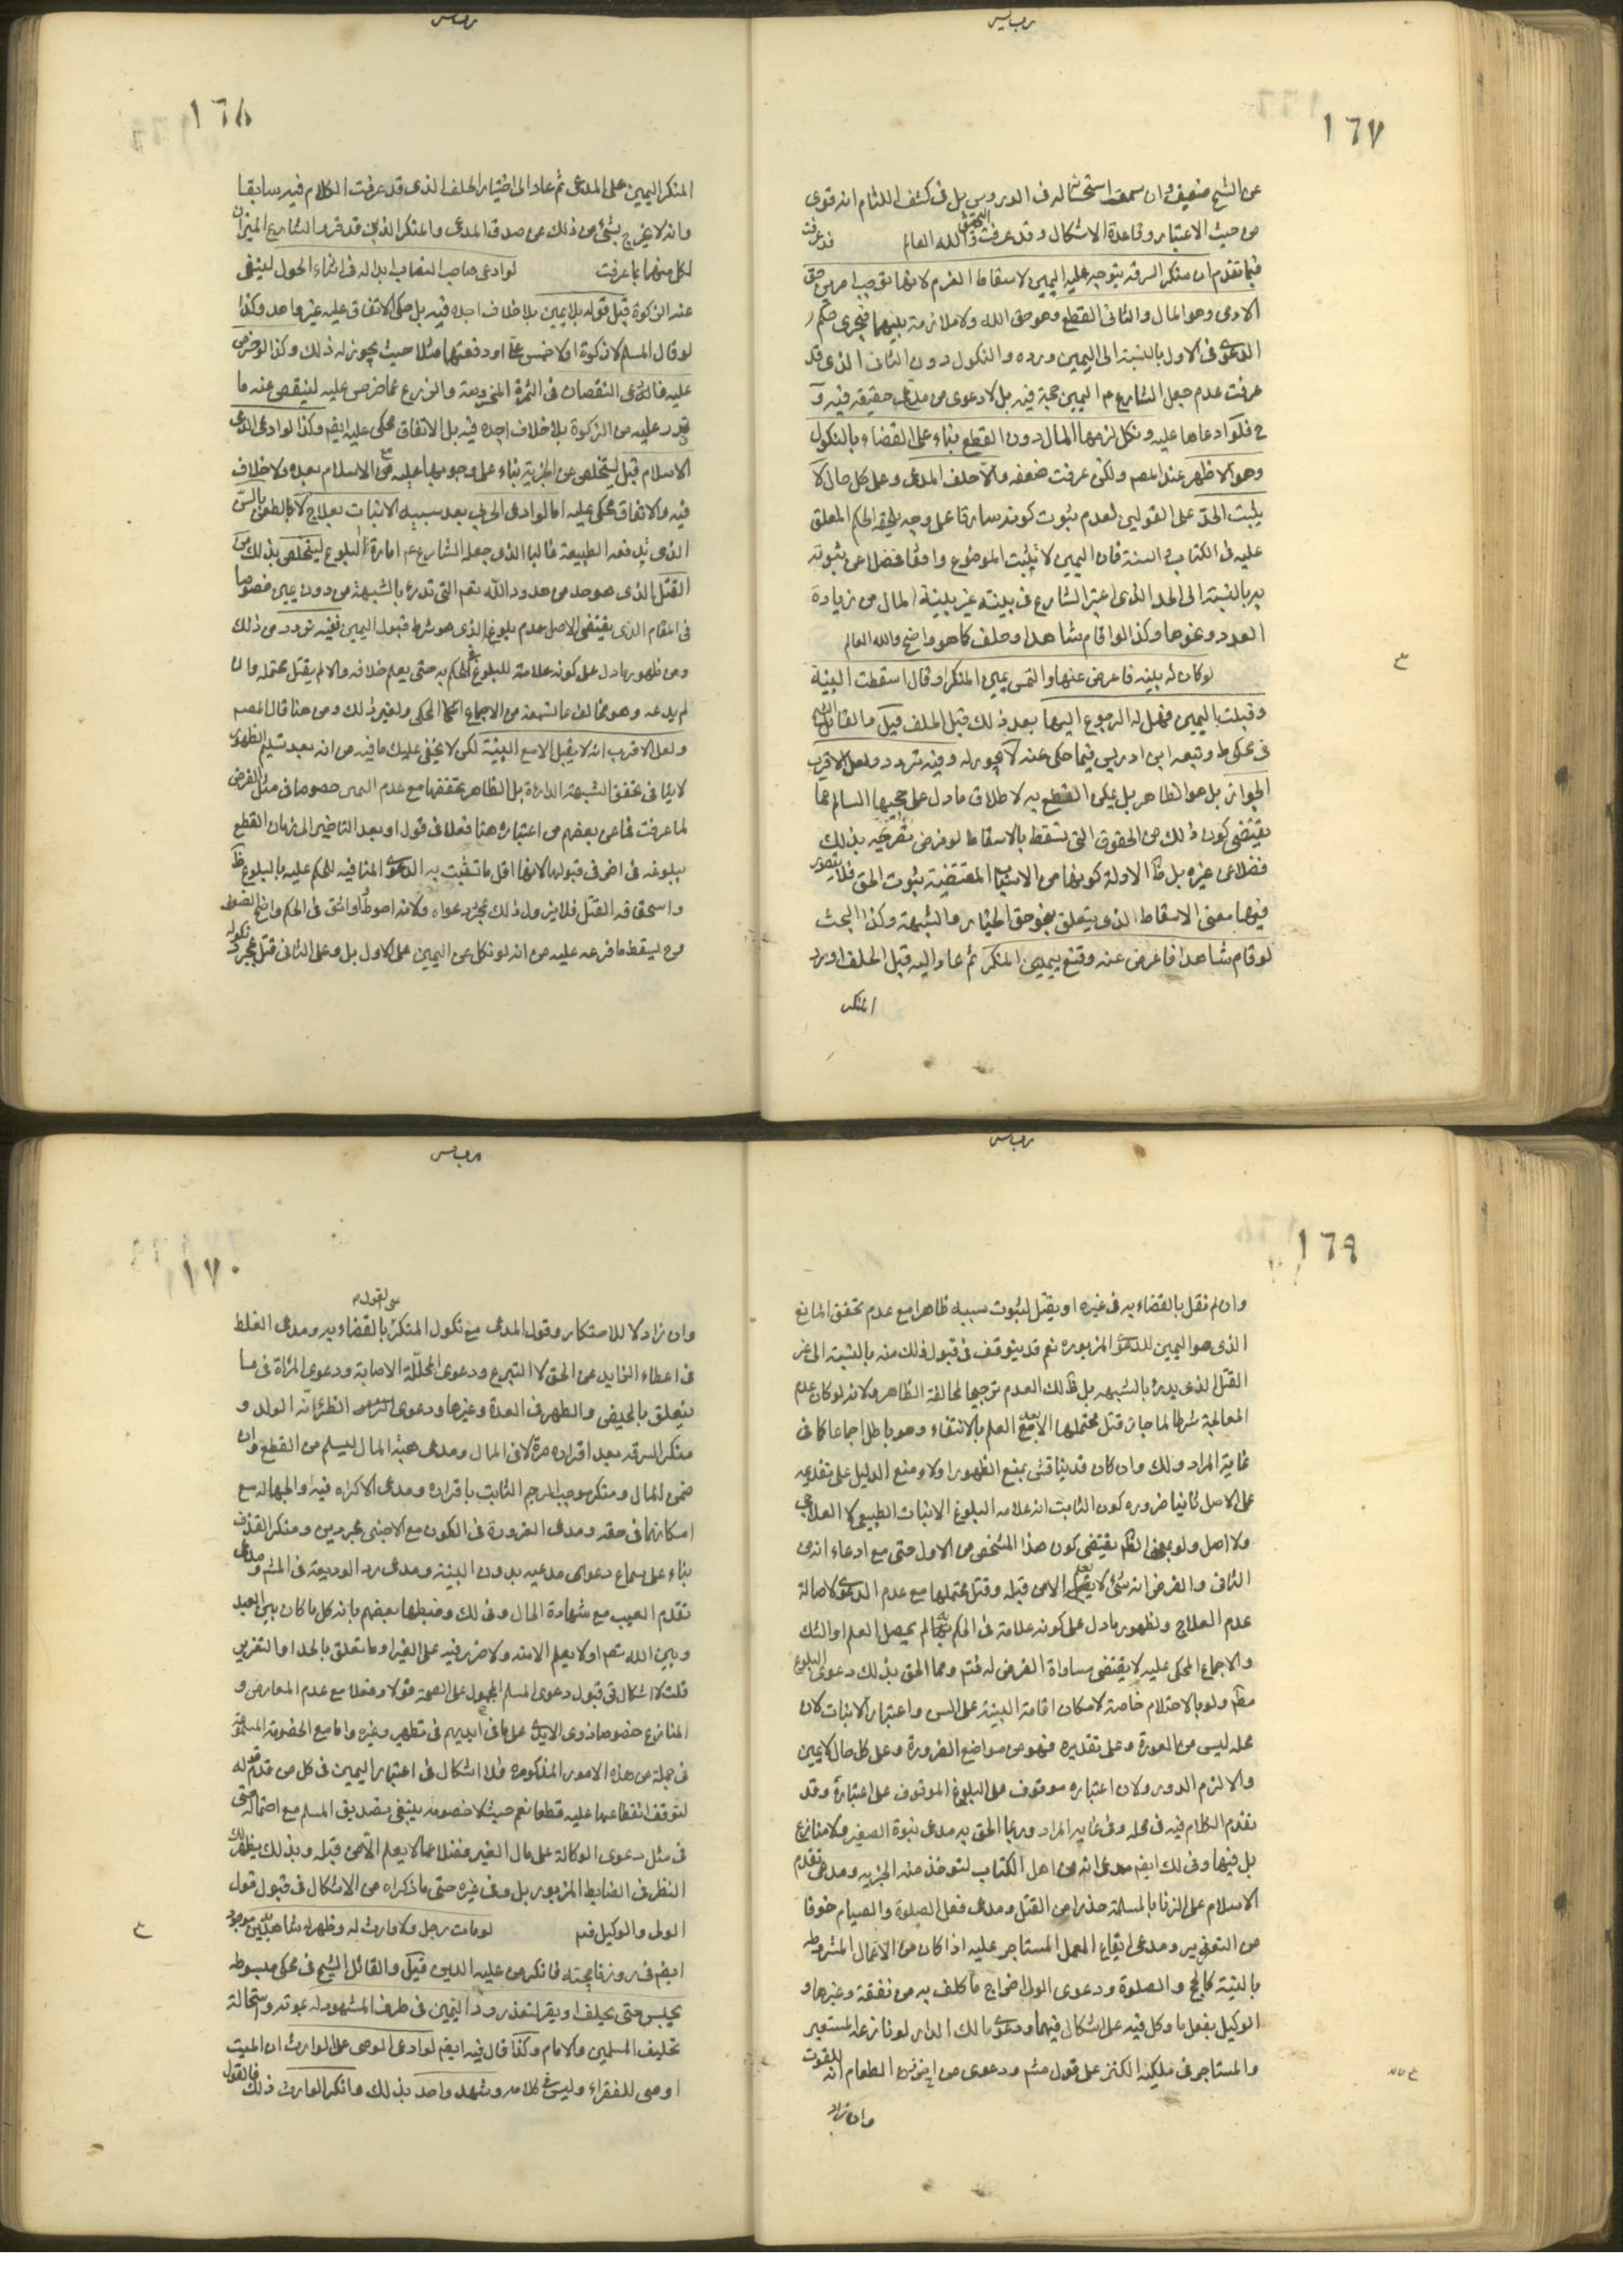 ١٦٧
عن الشيخ ضعيف وان سمعت استحسانه في الدروس بل في كشف اللثام انه قوي
من حيث الاعتبار وقاعدة الاشكال وقد عرفت التحقيق والله العالم قد عرفت
فيما تقدم ان منكر السرقة يتوجه عليه اليمين لاسقاط الغرم لانها توجب امرين حق
الادمي وهو المال والثاني القطع وهو حق الله ولا ملازمة بينهما فيجري حكم
الدعوى في الاول بالنسبة الى اليمين ورده والنكول دون الثاني الذي قد
عرفت عدم جعل الشارع اليمين حجة فيه بل لا دعوى من مدعي حقيقة فيه و
ح فلو ادعاها عليه ونكل لزمها المال دون القطع بناء على القضاء بالنكول
وهو الاظهر عند المصـ ولكن عرفت ضعفه والا حلف المدعي وعلى كل حال لا
يثبت الحد على القولين لعدم ثبوت كونه سارقا على وجه يلحقه الحكم المعلق
عليه في الكتاب والسنة فان اليمين لا يثبت الموضوع واقعا فضلا عن ثبوته
به بالنسبة الى الحد الذي اعتبر الشارع في بينته غير بينة المال من زيادة
العدد ونحوها وكذا لو اقام شاهدا وحلف كما هو واضح والله العالم
لو كان له بينة فاعرض عنها والتمس يمين المنكر او قال اسقطت البينة
وقبلت باليمين فهل له الرجوع اليها بعد ذلك قبل الحلف قيل والقائل الشيخ
في محكي ط وتبعه ابن ادريس فيما حكي عنه لا يجوز له وفيه تردد ولعل الاقرب
الجواز بل هو الظاهر بل يمكن القطع به لاطلاق ما دل على حجيتها السالم عما
يقتضي كون ذلك من الحقوق التي تسقط بالاسقاط لو فرض تصريحه بذلك
فضلا عن غيره بل ظ الادلة كونها من الاسباب المقتضية ثبوت الحق فلا يتصور
فيها معنى الاسقاط الذي يتعلق بنحو حق الخيار والشبهة وكذا البحث
لو اقام شاهدا فاعرض عنه وقنع بيمين المنكر ثم عاد اليه قبل الحلف او رد
المنكر
١٦٨
المنكر اليمين على المدعي ثم عاد الى اختيار الحلف الذي قد عرفت الكلام فيه سابقا
وانه لا يخرج بشئ من ذلك عن صدق المدعي والمنكر الذين قد قرر الشارع الميزان
لكل منهما بما عرفت لو ادعى صاحب النصاب ابداله في اثناء الحول لينفي
عنه الزكوة قبل قوله بلا يمين بلا خلاف اجده فيه بل حكى الاتفاق عليه غير واحد وكذا
لو قال المسلم لا زكوة او لا خمس علي او دفعتهما مثلا حيث يجوز له ذلك وكذا لو خرص
عليه فادعى النقصان في الثمرة المخروصة والزرع عما خرص عليه لينقص عنه ما
قدر عليه من الزكوة بلا خلاف اجده فيه بل الاتفاق محكي عليه ايضـ وكذا لو ادعى الذمي
الاسلام قبل ليتخلص عن الجزية بناء على وجوبها عليه مع الاسلام بعده ولا خلاف
فيه والاتفاق محكي عليه اما لو ادعى الحربي بعد سبيه الانبات بعلاج لا بالطعن بالسن
الذي تدفعه الطبيعة غالبا الذي جعله الشارع امارة للبلوغ ليتخلص بذلك من
القتل الذي هو حد من حدود الله تعـ التي تدرء بالشبهة من دون يمين خصوصا
في المقام الذي يقتضي الاصل عدم بلوغه الذي هو شرط قبول اليمين ففيه تردد من ذلك
ومن ظهور ما دل على كونه علامة للبلوغ في الحكم به حتى يعلم خلافه والا لم يقتل محتمله وان
لم يدعه وهو مخالف لما تسمعه من الاجماع المحكي ولغير ذلك ومن هنا قال المصـ
ولعل الاقرب انه لا يقبل الا مع البينة لكن لا يخفى عليك ما فيه من انه بعد تسليم الظهور
لا ينافي تحقق الشبهة الدارءة بل الظاهر تحققها مع عدم اليمين خصوصا في مثل الفرض
لما عرفت فما عن بعضهم من اعتباره هنا فعلا في قول او بعد التاخير الى زمان القطع
ببلوغه في اخر في قبولها لانها اقل ما تثبت به الدعوى المنافية للحكم عليه بالبلوغ ظ
واستحقاقه القتل فلا يزول ذلك بمجرد دعواه ولانه احوط واوثق في الحكم واضح الضعف
وح يسقط ما فرعه عليه من انه لو نكل عن اليمين على الاول بل وعلى الثاني قتل بمجرد نكوله
١٦٩
وان لم نقل بالقضاء به في غيره او يقتل لثبوت سببه ظاهرا مع عدم تحقق المانع
الذي هو اليمين للدعوى المزبورة نعم قد يتوقف في قبول ذلك منه بالنسبة الى غير
القتل الذي يدرء بالشبهه بل ظ ذلك العدم ترجيحا لمخالفة الظاهر ولانه لو كان عدم
المعالجة شرطا لما جاز قتل محتملها الا بعد العلم بالانتفاء وهو باطل اجماعا كما في
غاية المراد ولك وان كان قد يناقش بمنع الظهور اولا ومنع الدليل على تقديمه
على الاصل ثانيا ضرورة كون الثابت انه علامة البلوغ الانبات الطبيعي لا العلاجي
ولا اصل ولو بمعنى الظـ يقتضي كون هذا المشخص من الاول حتى مع ادعاء انه من
الثاني والفرض انه شئ لا يعلم الا من قبله وقتل محتملها مع عدم الدعوى لاصالة
عدم العلاج ولظهور ما دل على كونه علامة في الحكم به ما لم يحصل العلم او الشك
والاجماع المحكي عليه لا يقتضي مساواة الفرض له فتـ ومما الحق بذلك دعوى البلوغ
مطـ ولو بالاحتلام خاصة لامكان اقامة البينة على السن واعتبار الانبات لان
محله ليس من العورة وعلى تقديره فهو من مواضع الضرورة وعلى كل حال لا يمين
والا لزم الدور لان اعتباره موقوف على البلوغ الموقوف على اعتباره وقد
تقدم الكلام فيه في محله وفي غاية المراد وربما الحق به مدعي بنوة الصغير ولا منازع
بل فيها وفي لك ايضـ مدعي انه من اهل الكتاب لتوخذ منه الجزيه ومدعي تقدم
الاسلام على الزنا بالمسلمة حذرا من القتل ومدعي فعل الصلوة والصيام خوفا
من التعزير ومدعي ايقاع العمل المستاجر عليه اذا كان من الاعمال المشروطه
بالنية كالحج والصلوة ودعوى الولي اخراج ما كلف به من نفقة وغيرها و
الوكيل بفعل ما وكل فيه على اشكال فيهما ودعوى مالك الدار لو نازعه المستعير
والمستاجر في ملكية الكنز على قول مشـ ودعوى من الطعام انه للقوت
وان زاد
١٧٠
وان زاد لا للاحتكار وقول المدعي مع نكول المنكر على القول بالقضاء به ومدعي الغلط
في اعطاء الزايد عن الحق لا التبرع ودعوى المحللة الاصابة ودعوى المراة في ما
يتعلق بالحيض والطهر في العدة وغيرها ودعوى الظئر انه الولد و
منكر السرقه بعد اقراره مرة لا في المال ومدعي هبة المال ليسلم من القطع وان
ضمن المال ومنكر موجب الرجم الثابت باقراره ومدعي الاكراه فيه او الجهالة مع
امكانهما في حقه ومدعي الضرورة في الكون مع الاجنبي مجردين ومنكر القذف
بناء على سماع دعوى مدعيه بدون البينة ومدعي رد الوديعة في المشـ ومدعي
تقدم العيب مع شهادة الحال وفي لك وضبطها بعضهم بانه كل ما كان بين العبد
وبين الله تعـ او لا يعلم الا منه ولا ضرر فيه على الغير او ما تعلق بالحد او التعزير
قلت لا اشكال في قبول دعوى المسلم المحمول على الصحة قولا وفعلا مع عدم المعارض و
المنازع خصوصا ذوي الايدي على ما في ايديهم في تطهير وغيره واما مع الخصومة المسموعة
في جملة من هذه الامور المذكورة فلا اشكال في اعتبار اليمين في كل من قدم قوله
لتوقف انقطاعها عليه قطعا نعم حيث لا خصومه ينبغي تصديق المسلم مع احتماله حتى
في مثل دعوى الوكالة على مال الغير فضلا عما لا يعلم الا من قبله وبذلك يظهر لك
النظر في الضابط المزبور بل وفي غيره حتى ما ذكراه من الاشكال في قبول قول
الولي والوكيل فتـ لو مات رجل ولا وارث له وظهر له شاهد بدين موجود
ايضـ في روزنامجته فانكر من عليه الدين قيل والقائل الشيخ في محكي مبسوطه
يحبس حتى يحلف او يقر لتعذر رد اليمين في طرف المشهود له بموته واستحالة
تحليف المسلمين والامام وكذا قال فيه ايضـ لو ادعى الوصي على الوارث ان الميت
اوصى للفقراء وليس في كلامه وشهد واحد بذلك وانكر الوارث ذلك فالقول